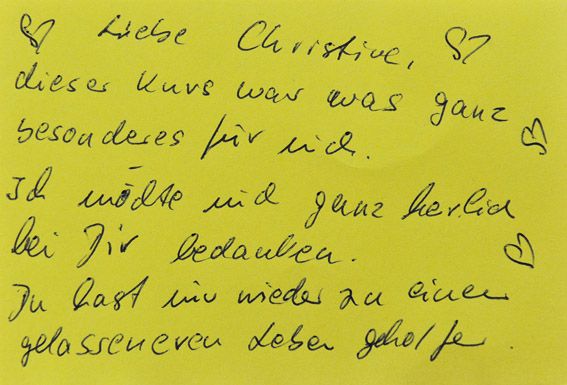 Liebe Christine,
dieser Kurs war was ganz
besonderes für mich.
Ich möchte mich ganz herlich
bei Dir bedanken.
Du hast mir wieder zu einem
gelasseneren Leben geholfen.